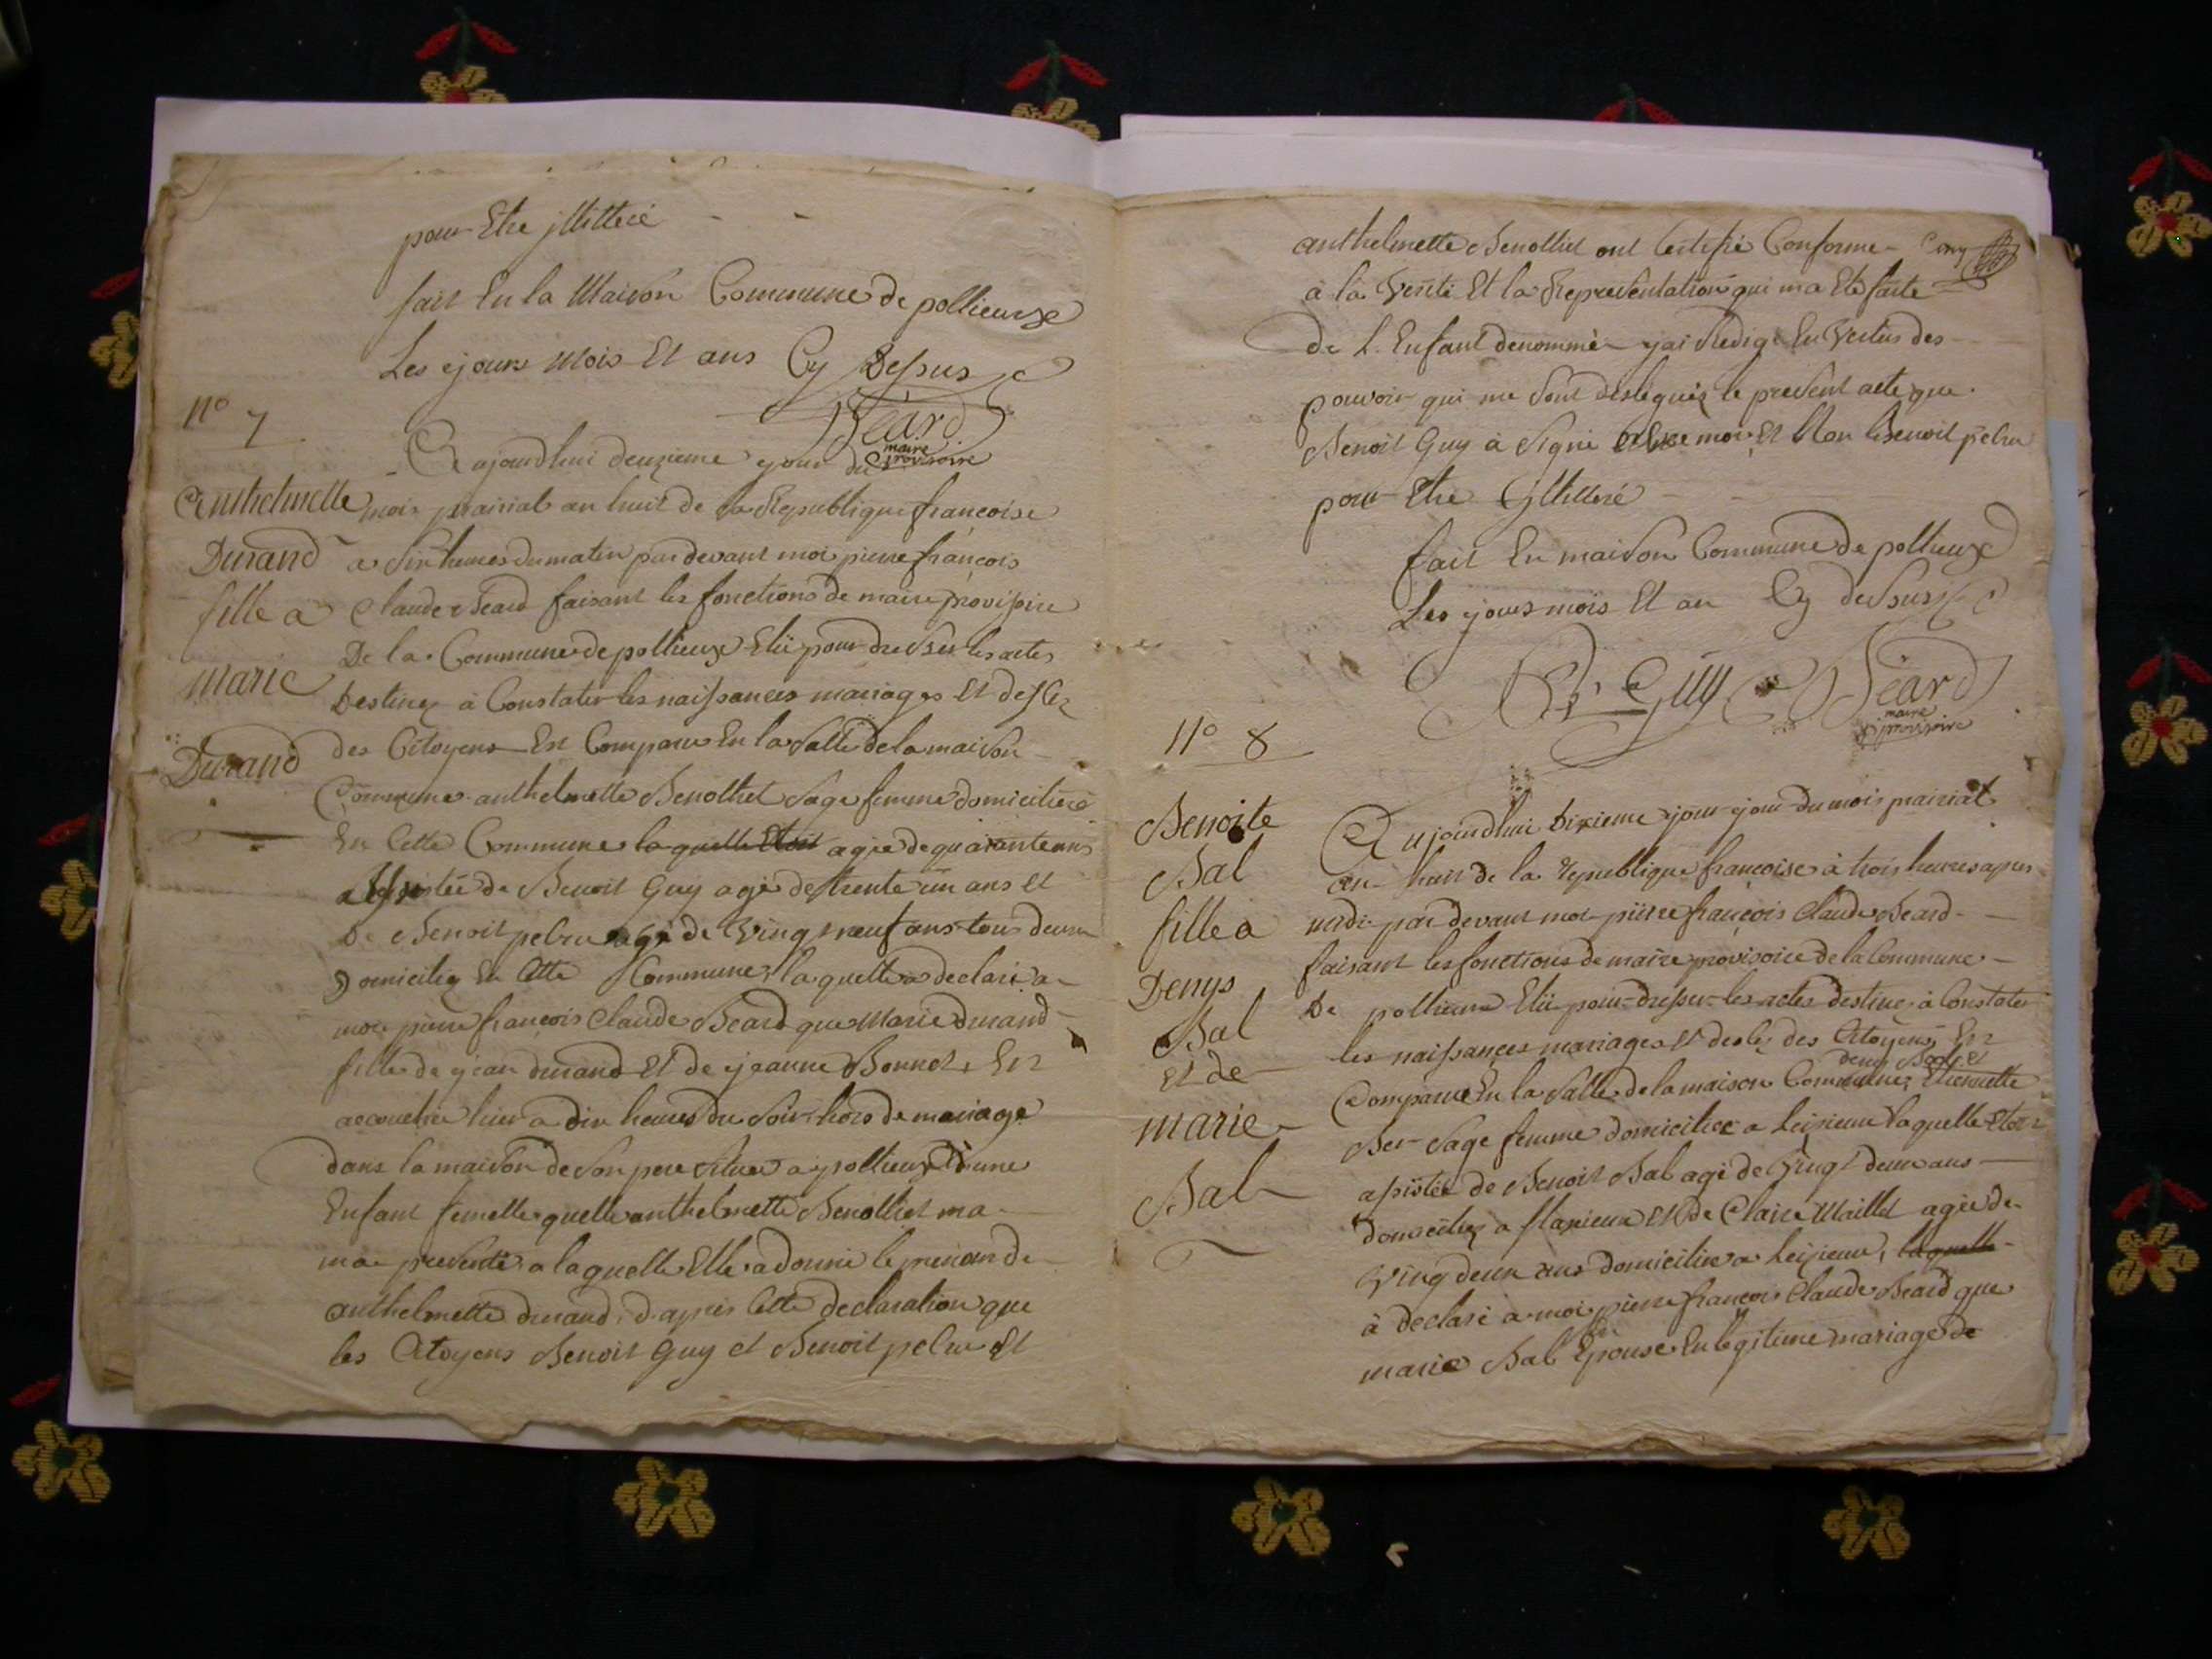 pour Etre jllitteré
fait En la Maison Commune de pollieux
Les ejours Mois Et ans Cy Dessus
Séard
maire
provisoire
N° 7
Anthelmette
Durand
fille a
Marie
Durand
ajourdhui deuxieme ejour du
mois prairial an huit de la Republique françoise
a six heures du matin par devant moi pierre françois
Claude Séard faisant les fonctions de maire provisoire
De la Commune de pollieux Elû pour dresser les actes
Destinez à Constater les naissances mariages Et desez
des Citoyens Est Comparu En la Salle de la maison
Commune anthelmette Benolliet Sage femme domiciliere
En Cette Commune la quelle Etoit agée de quarante ans
assistée de Benoit Guy agé de trente un ans Et
De Benoit pelru agé de Vingt neuf ans tous deux
Domicilié En Cette Commune, la quelle a declaré a
moi pierre françois Claude Séard que Marie durand
fille de ejean durand Et de ejeanne Bonnet, Est
accouchée hier a dix heures du Soir hors de mariage
dans la maison de son pere situee a pollieux d'une
Enfant femelle quelle anthelmette Benolliet ma
ma presenté a la quelle Elle a donné le prenom de
anthelmette durand, d'apres Cette declaration que
les Citoyens Benoit Guy et Benoit pelru Et
anthelmette Benolliet ont Certifié Conforme
à la Verité Et la Representation qui ma Eté faite
de L'Enfant denommé jai Redigé En Vertus des
pouvoir qui me sont desleguez le present acte que
Benoit Guy à Signé avec moi Et Non Benoit pelru
pour Etre Jllitteré
fait En maison Commune de pollieux
Les ejours mois Et an Cy dessus
Bt Guy Séard
maire
provisoire
N° 8
Benoite
Bal
fille a
Denys
Bal
Et de
Marie
Bal
Aujourdhui dixieme ejour ejour du mois prairial
an huit de la Republique françoise à trois heures apres
midi par devant moi pierre françois Claude Séard
faisant les fonctions de maire provisoire de la Commune
De pollieux Elû pour dresser les actes destinez à Constater
les naissances mariages Et desez des Citoyens Est
Comparue En la Salle de la maison Commune, Etiennette
Sage femme domiciliee a Leizieux laquelle Etoit
assistée de Benoit Bal agé de Vingt deux ans
domicilié a flaxieux Et de Claire Maillet agée de
Vingt deux ans domiciliee a Leizieux, laquelle
à declaré a moi pierre françois Claude Séard que
marie Bal Epouse En legitime mariage de